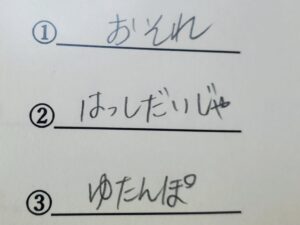 ① おそれ
② はっしだいじゃ
③ ゆたんぽ